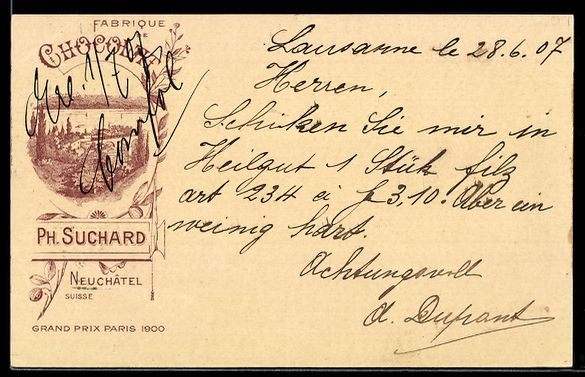 FABRIQUE
DE
CHOCOLAT
PH. SUCHARD
NEUCHÂTEL
SUISSE
GRAND PRIX PARIS 1900
Lausanne le 28.6.07
Herren,
Schiken Sie mir in
Heilgut 1 Stük filz
art 234 à f 3,10. Aber ein
weinig hart.
Achtungsvoll
A. Dupant